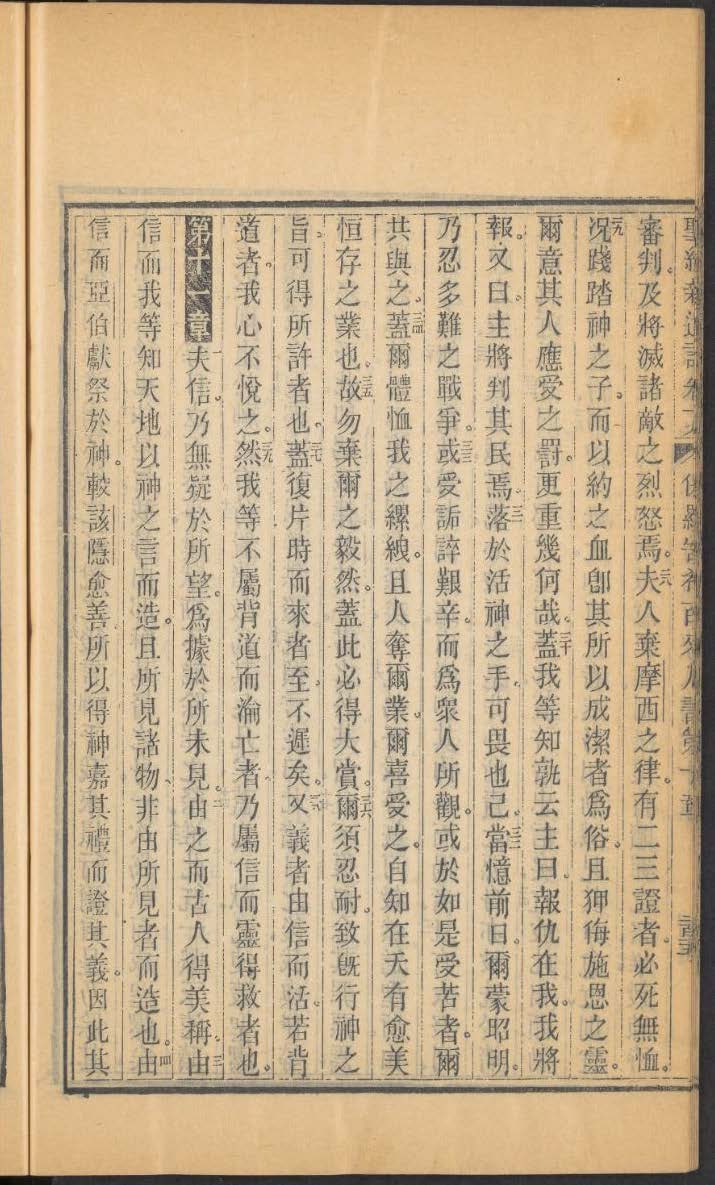 審判。及將滅諸敵之烈怒焉。二八夫人棄摩西之律。有二三證者。必死無恤。
二九況踐踏神之子。而以約之血卽其所以成潔者爲俗。且狎侮施恩之靈。
爾意其人應受之罰。更重幾何哉。三十蓋我等知孰云主曰。報仇在我。我將
報。又曰。主將判其民焉。三一落於活神之手。可畏也已。三二當憶前日。爾蒙昭明。
乃忍多難之戰爭。三三或受詬誶艱辛。而爲衆人所觀。或於如是受苦者。爾
共與之。三四蓋爾體恤我之縲絏。且人奪爾業。爾喜受之。自知在天有愈美
恒存之業也。三五故勿棄爾之毅然。蓋此必得大賞。三六爾須忍耐。致旣行神之
旨。可得所許者也。三七蓋復片時而來者至。不遲矣。三八又義者由信而活。若背
道者。我心不悅之。三九然我等不屬背道而淪亡者。乃屬信而靈得救者也。
第十一章 一夫信。乃無疑於所望。爲據於所未見。二由之而古人得美稱。三由
信而我等知天地以神之言而造。且所見諸物、非由所見者而造也。四由
信而亞伯獻祭於神。較該隱愈善。所以得神嘉其禮而證其義。因此其